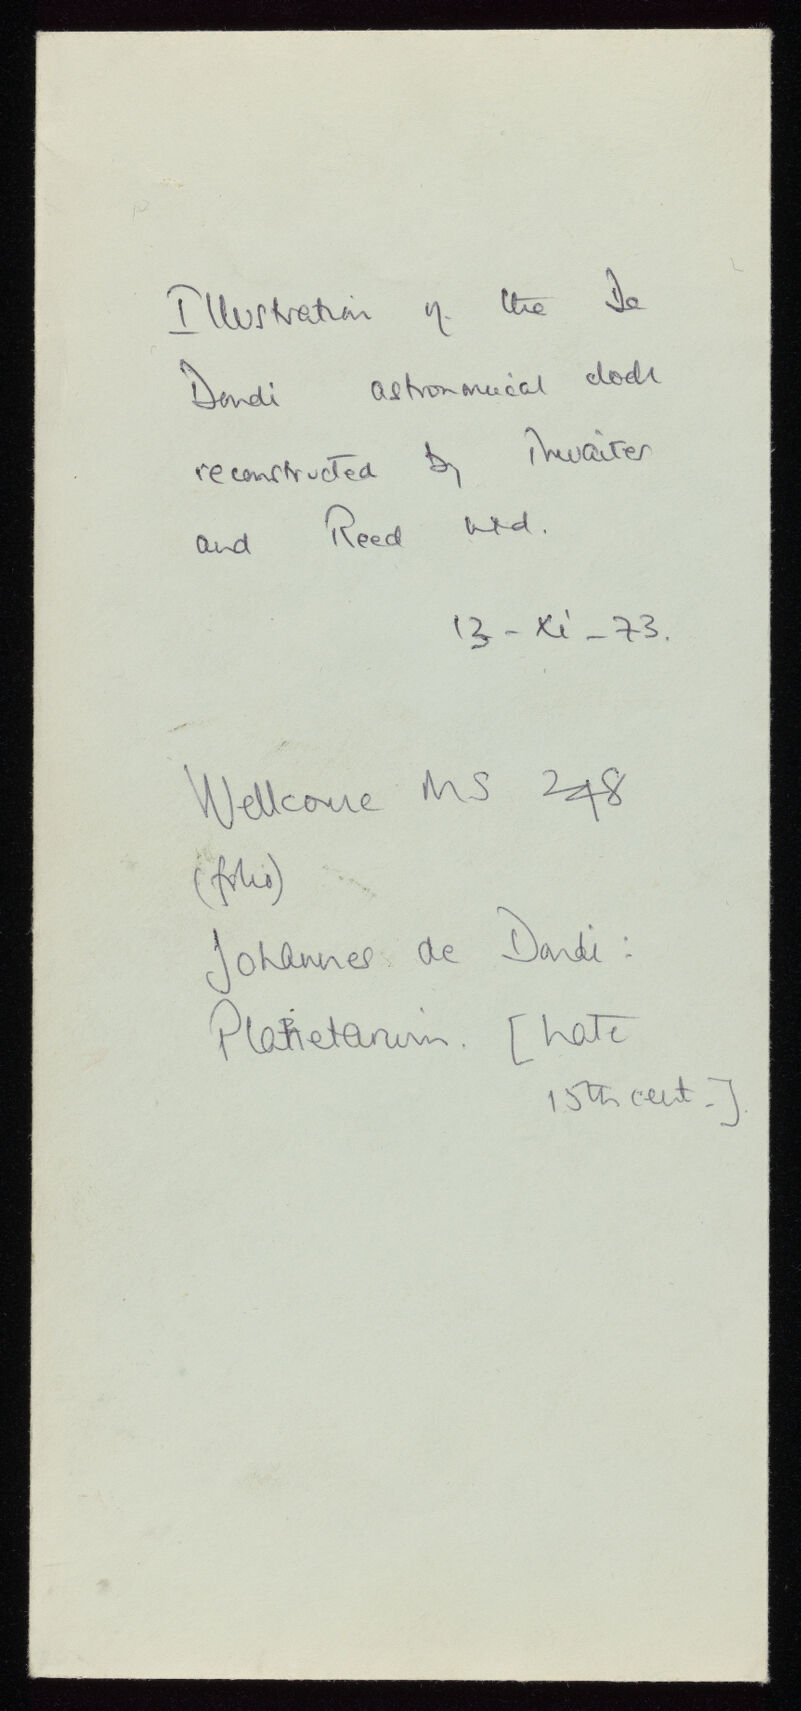 Illustration of the De
Dondi astronomical clock
reconstructed by Thwaites
and Reed Ltd.
13-xi-73.
Wellcome MS 248
(folio)
Johannes de Dondi:
Planetarium. [Late
15th cent.].